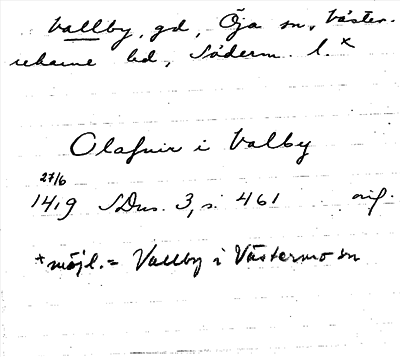 Vallby, gd, Öja sn, Väster-
rekarne hd, Söderm. l. x
Olafuir i Valby
27/6
1419 SDns. 3, s. 461 orig.
x möjl. = Vallby i Västermo sn